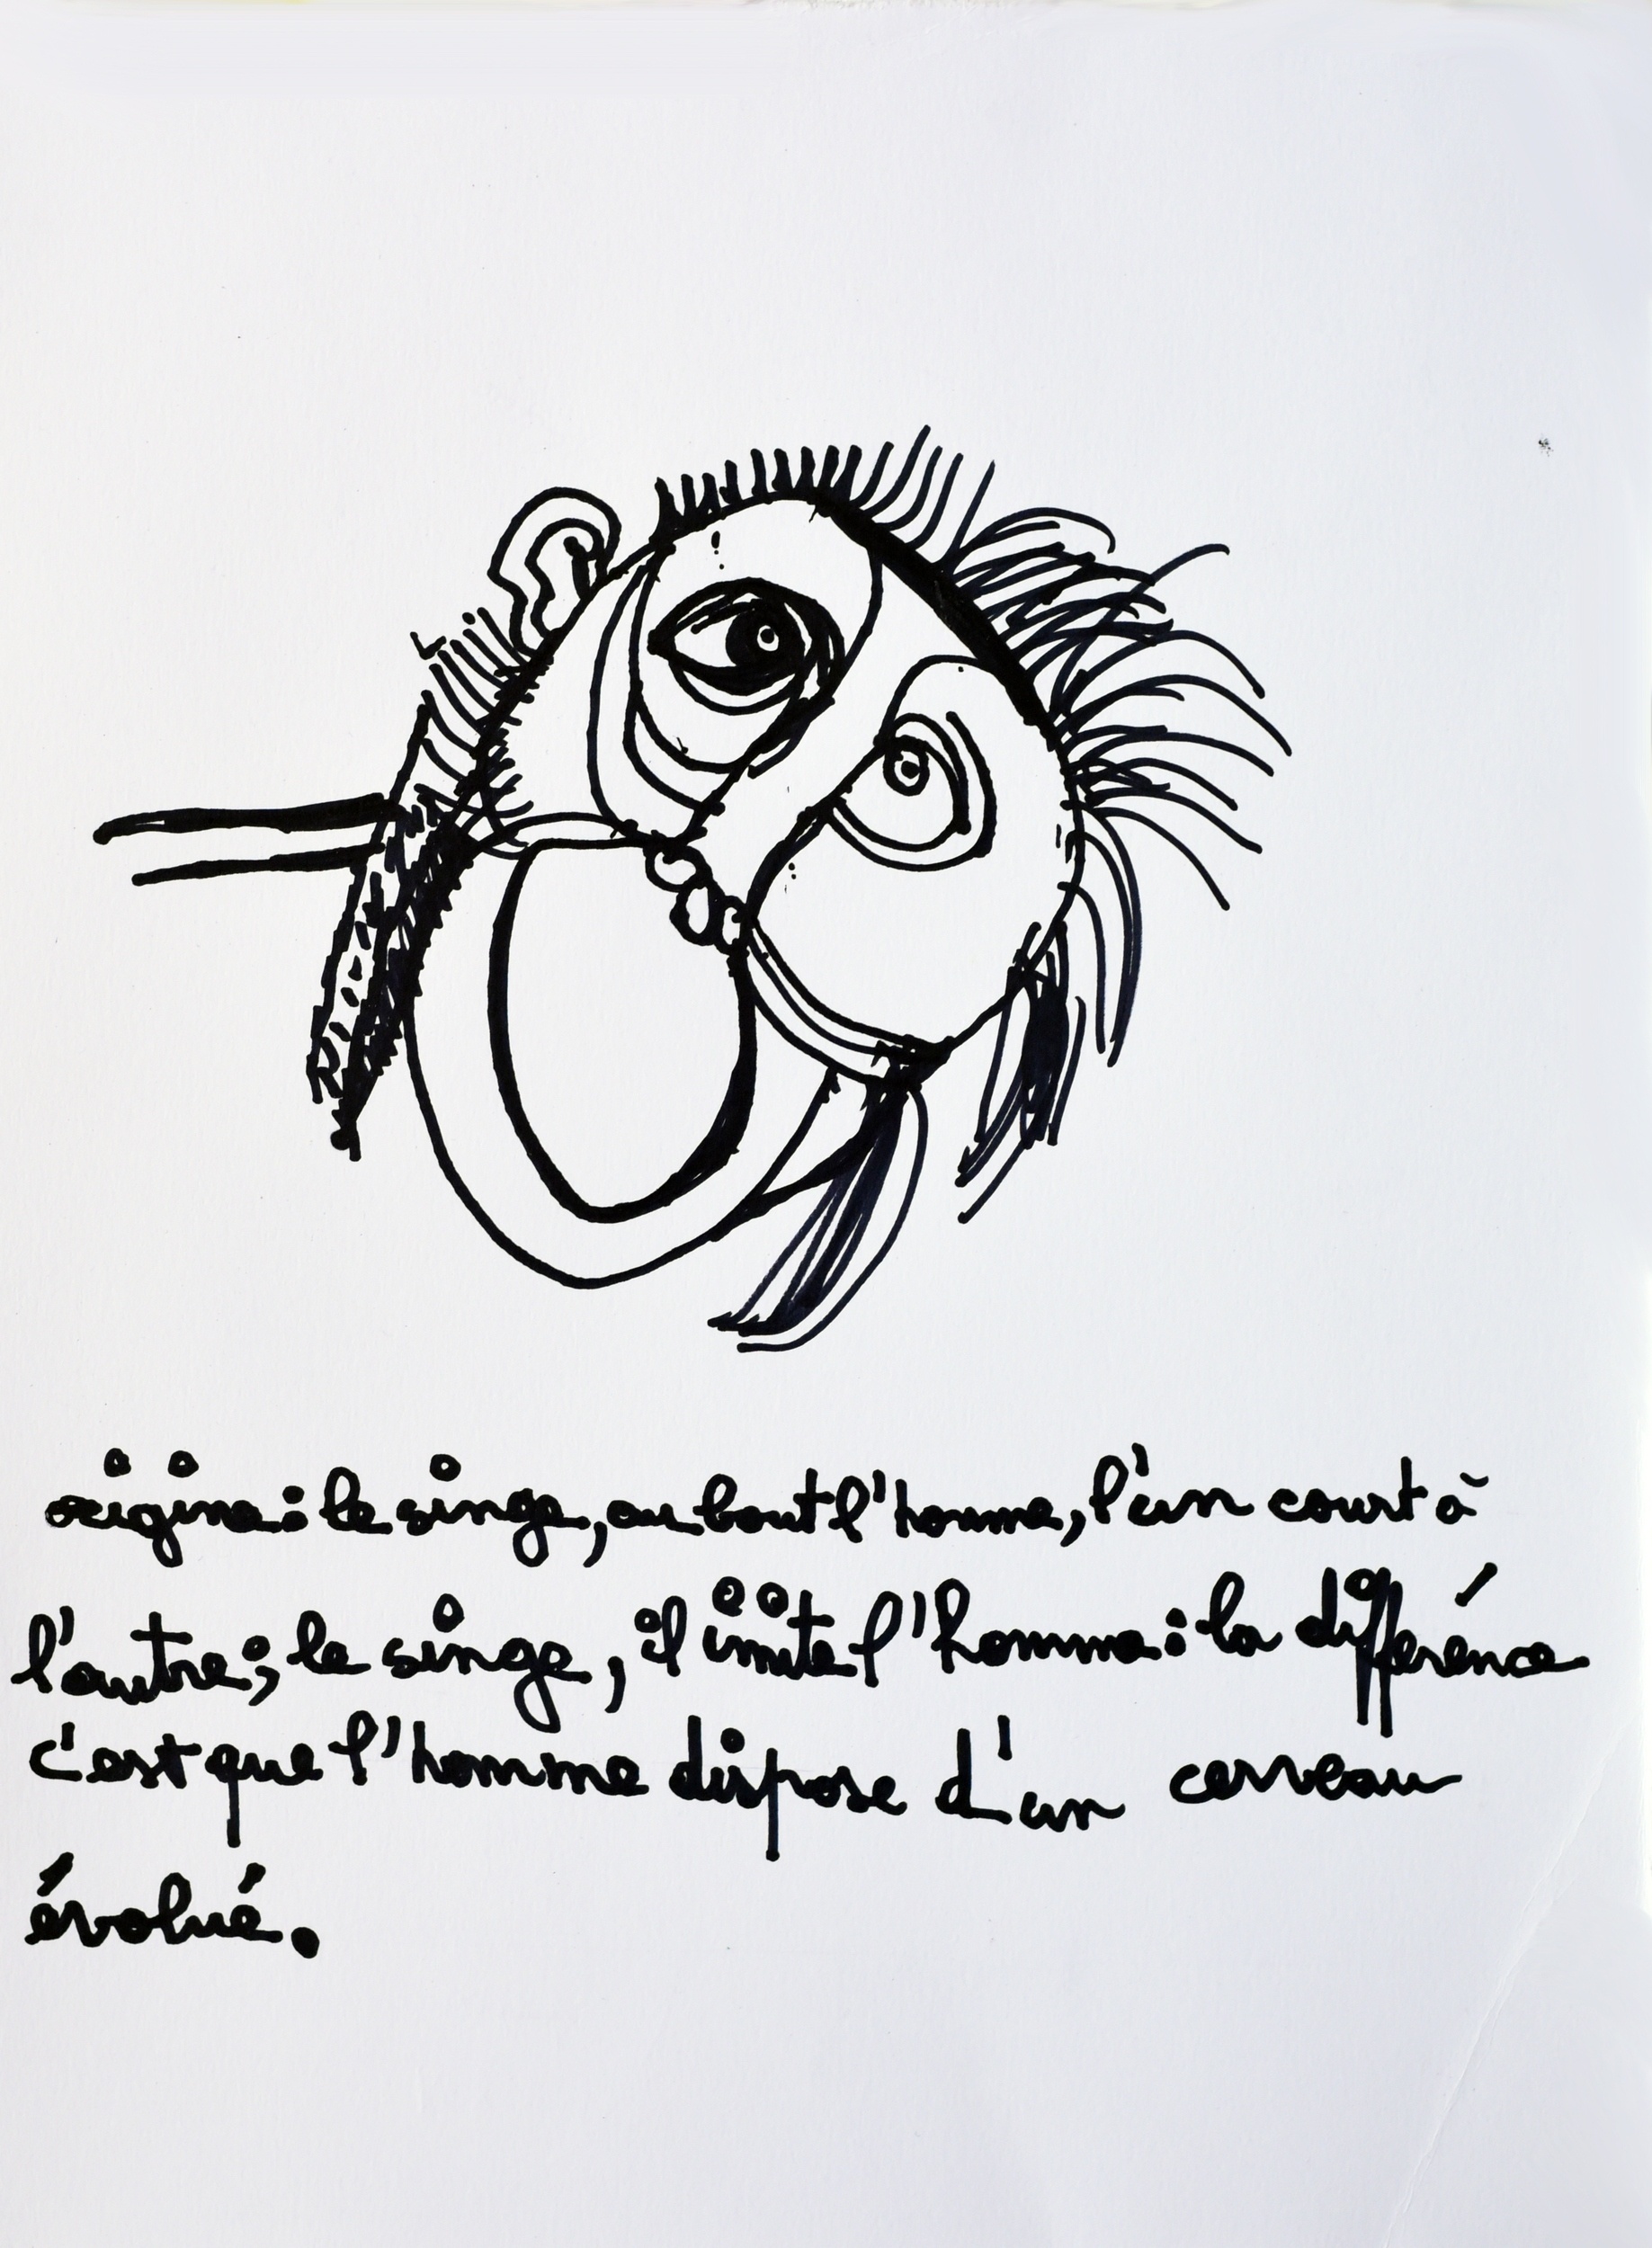 origine : le singe, au bout l'homme, l'un court à
l'autre ; le singe, il imite l'homme : la différence
c'est que l'homme dispose d'un cerveau
évolué.